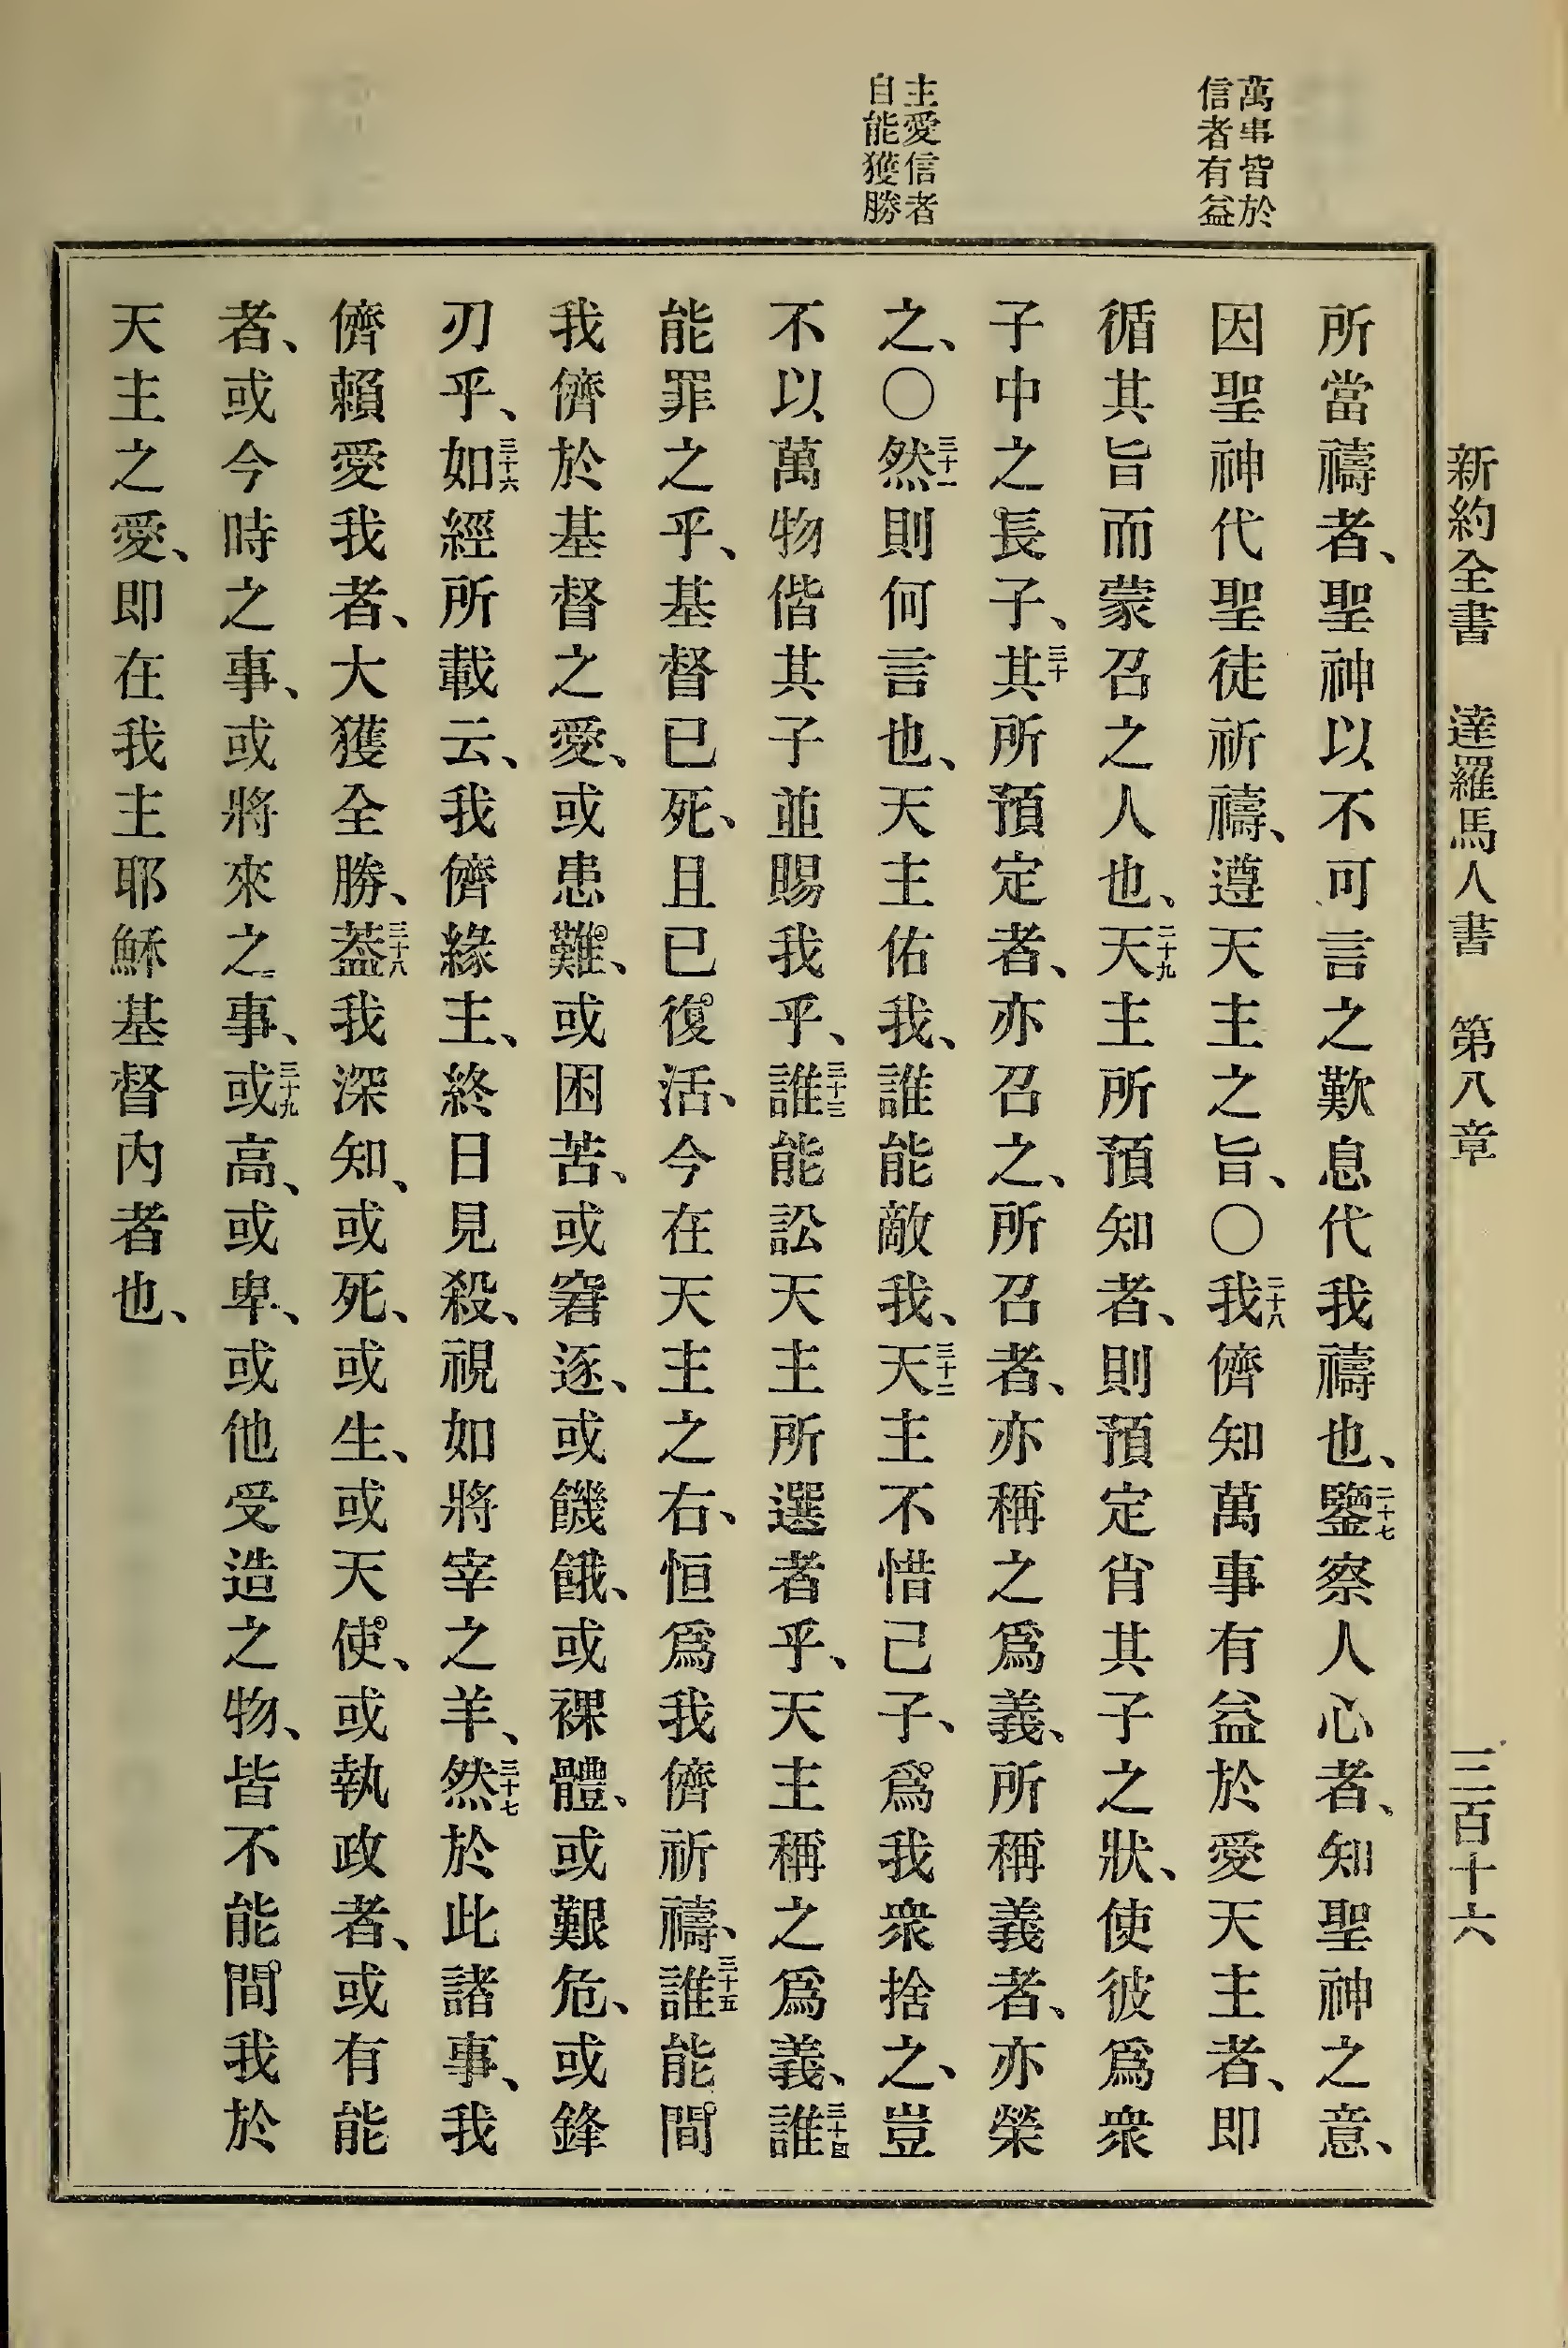 新約全書 達羅馬人書 第八章 三百十六
萬事皆於
信者有益
主愛信者
自能獲勝
所當禱者、聖神以不可言之歎息代我禱也、二十七鑒察人心者、知聖神之意、
因聖神代聖徒祈禱、遵天主之旨、〇二十八我儕知萬事有益於愛天主者、即
循其旨而蒙召之人也、二十九天主所預知者、則預定肖其子之狀、使彼爲衆
子中之長子、三十其所預定者、亦召之、所召者、亦稱之爲義、所稱義者、亦榮
之、〇三十一然則何言也、天主佑我、誰能敵我、三十二天主不惜己子、爲我衆捨之、豈
不以萬物偕其子並賜我乎、三十三誰能訟天主所選者乎、天主稱之爲義、三十四誰
能罪之乎、基督已死、且已復活、今在天主之右、恒爲我儕祈禱、三十五誰能間
我儕於基督之愛、或患難、或困苦、或窘逐、或饑餓、或裸體、或艱危、或鋒
刃乎、三十六如經所載云、我儕緣主、終日見殺、視如將宰之羊、三十七然於此諸事、我
儕賴愛我者、大獲全勝、三十八蓋我深知、或死、或生、或天使、或執政者、或有能
者、或今時之事、或將來之事、三十九或高、或卑、或他受造之物、皆不能間我於
天主之愛、即在我主耶穌基督內者也、